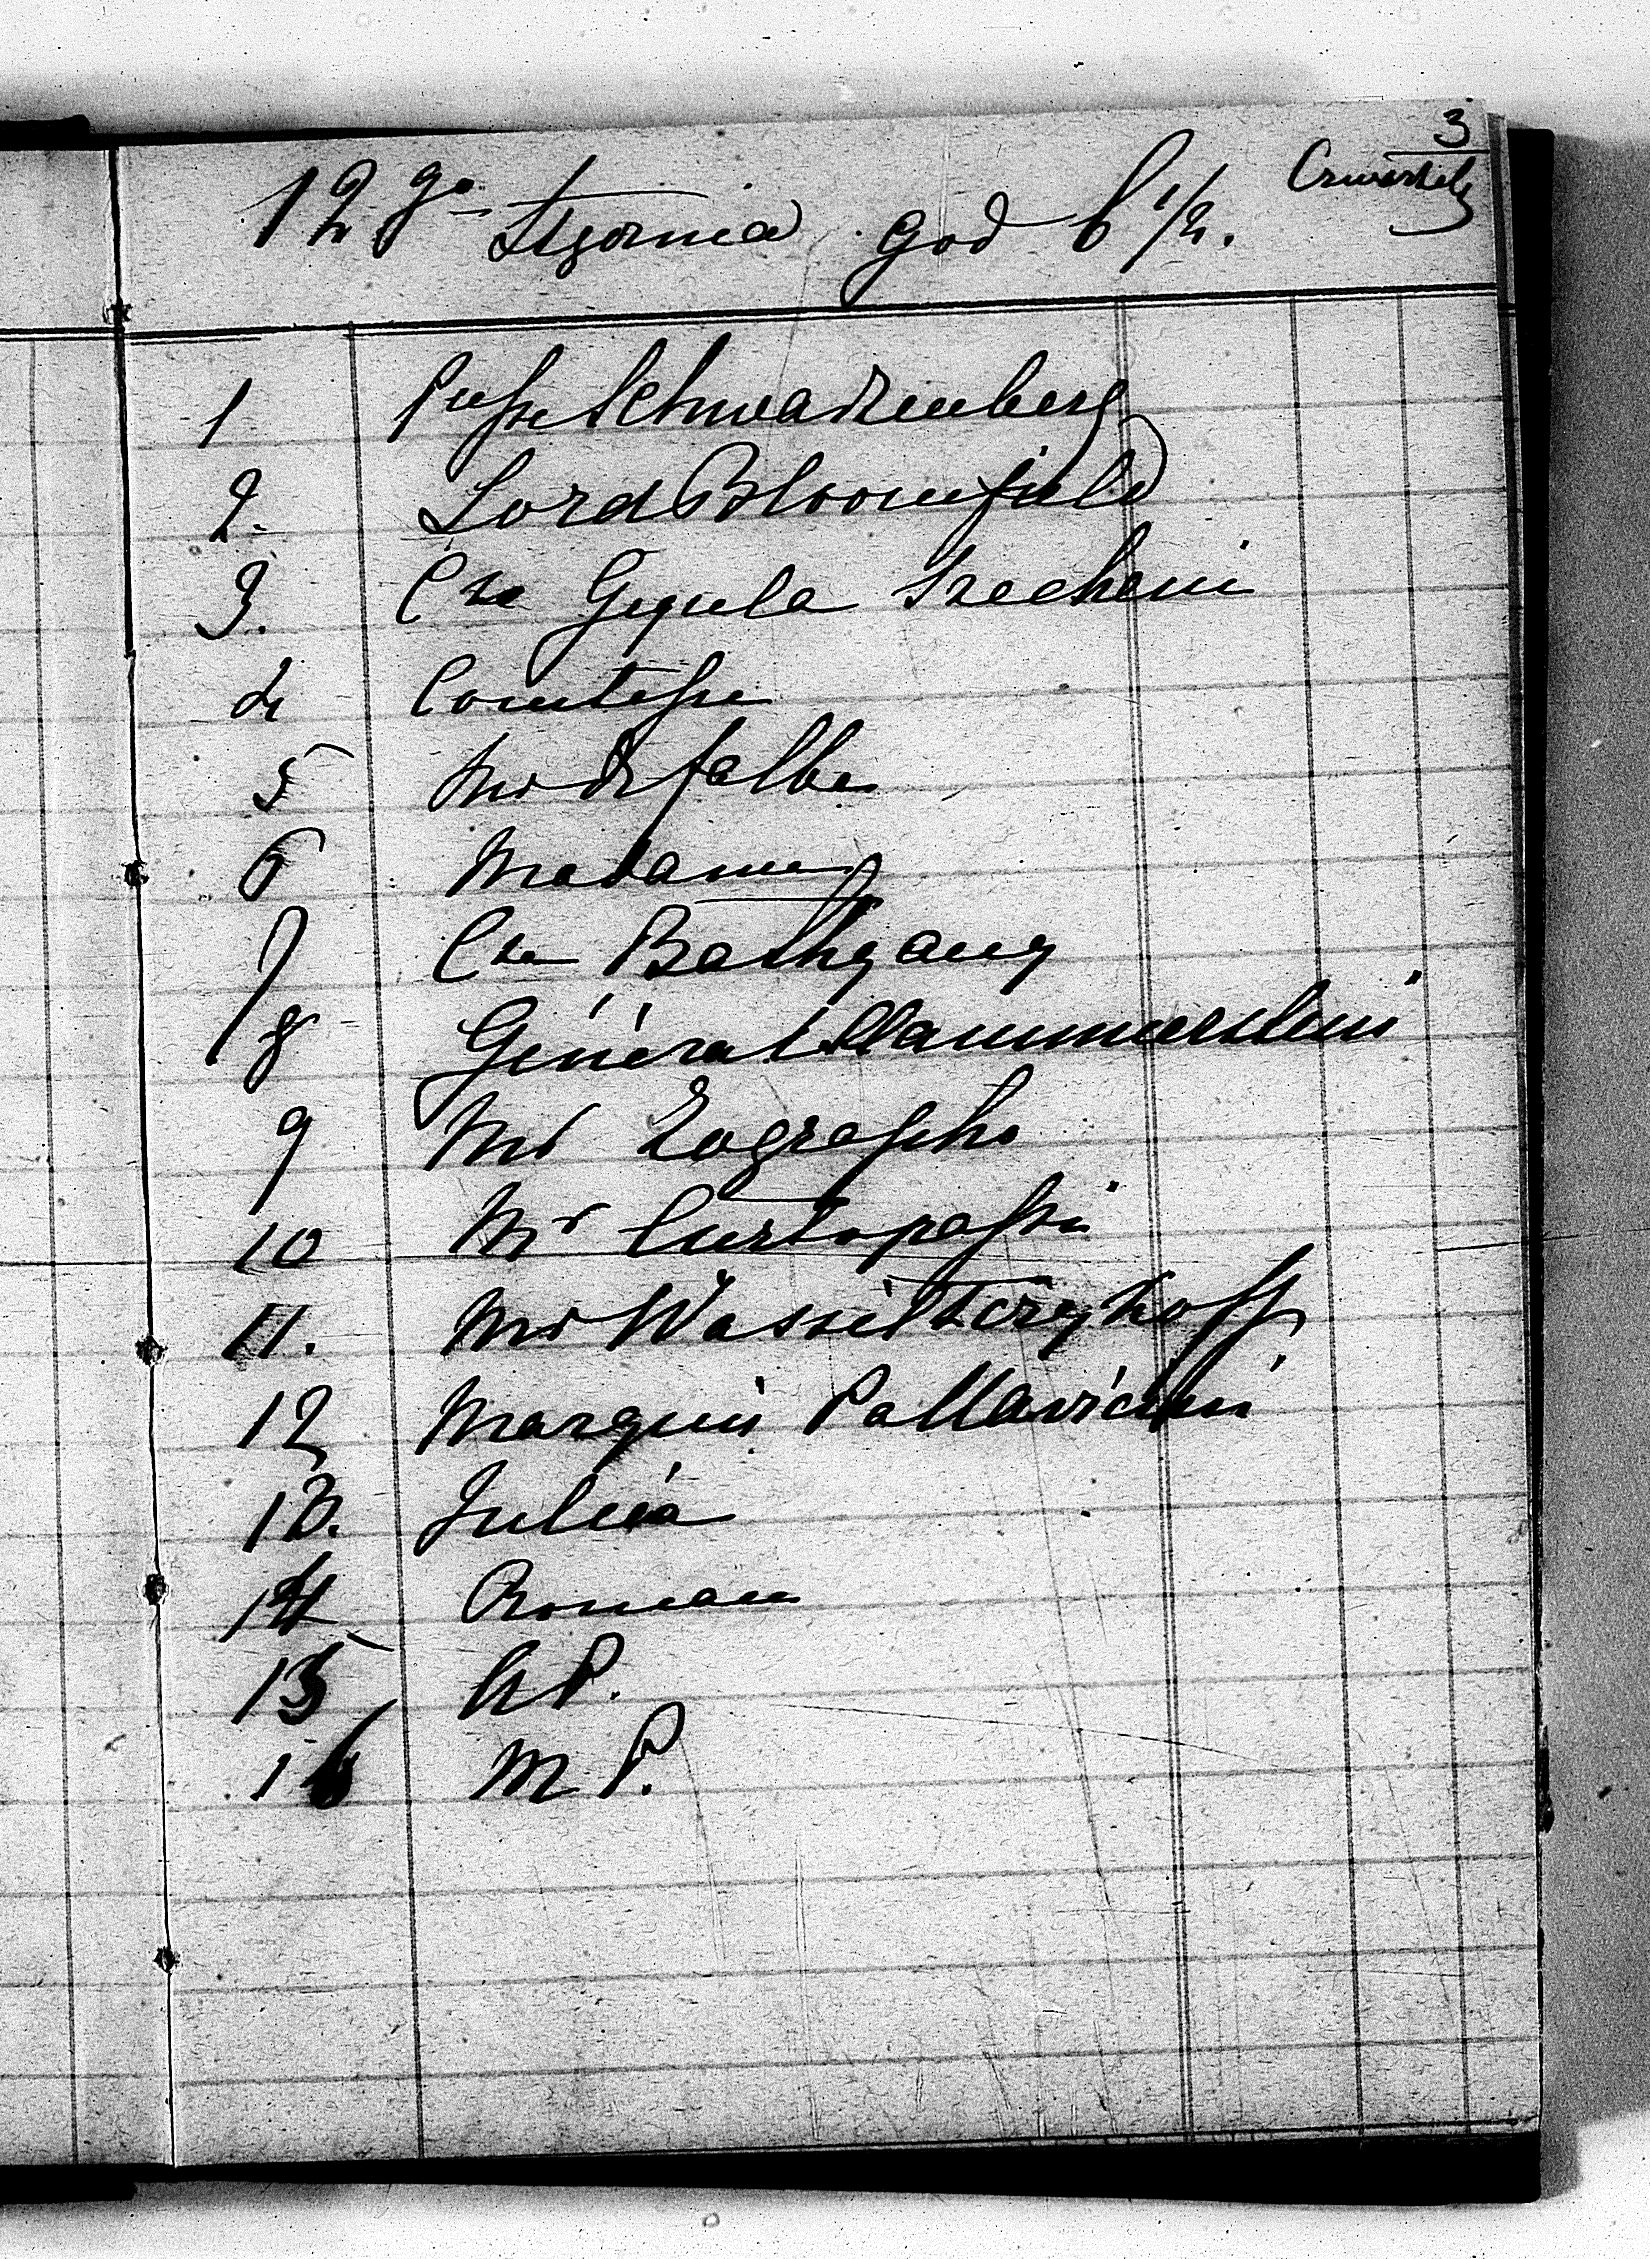 3
Czwartek
12go Stycznia god 6 1/2.
1 Pcesse Schwarzenberg
2. Lord Bloomfield
3. Cte Gyula Szecheni
4 Comtesse
5 Mr de Falbe
6 Madame
7 Cte Bathyany
8 Général Hammerstein
9 Mr Zographo
10 Mr Curtopassi
11. Mr Wassiltczykoff
12 Marquis Pallavicini
13. Julcia
14 Roman
15 A P.
16 M P.